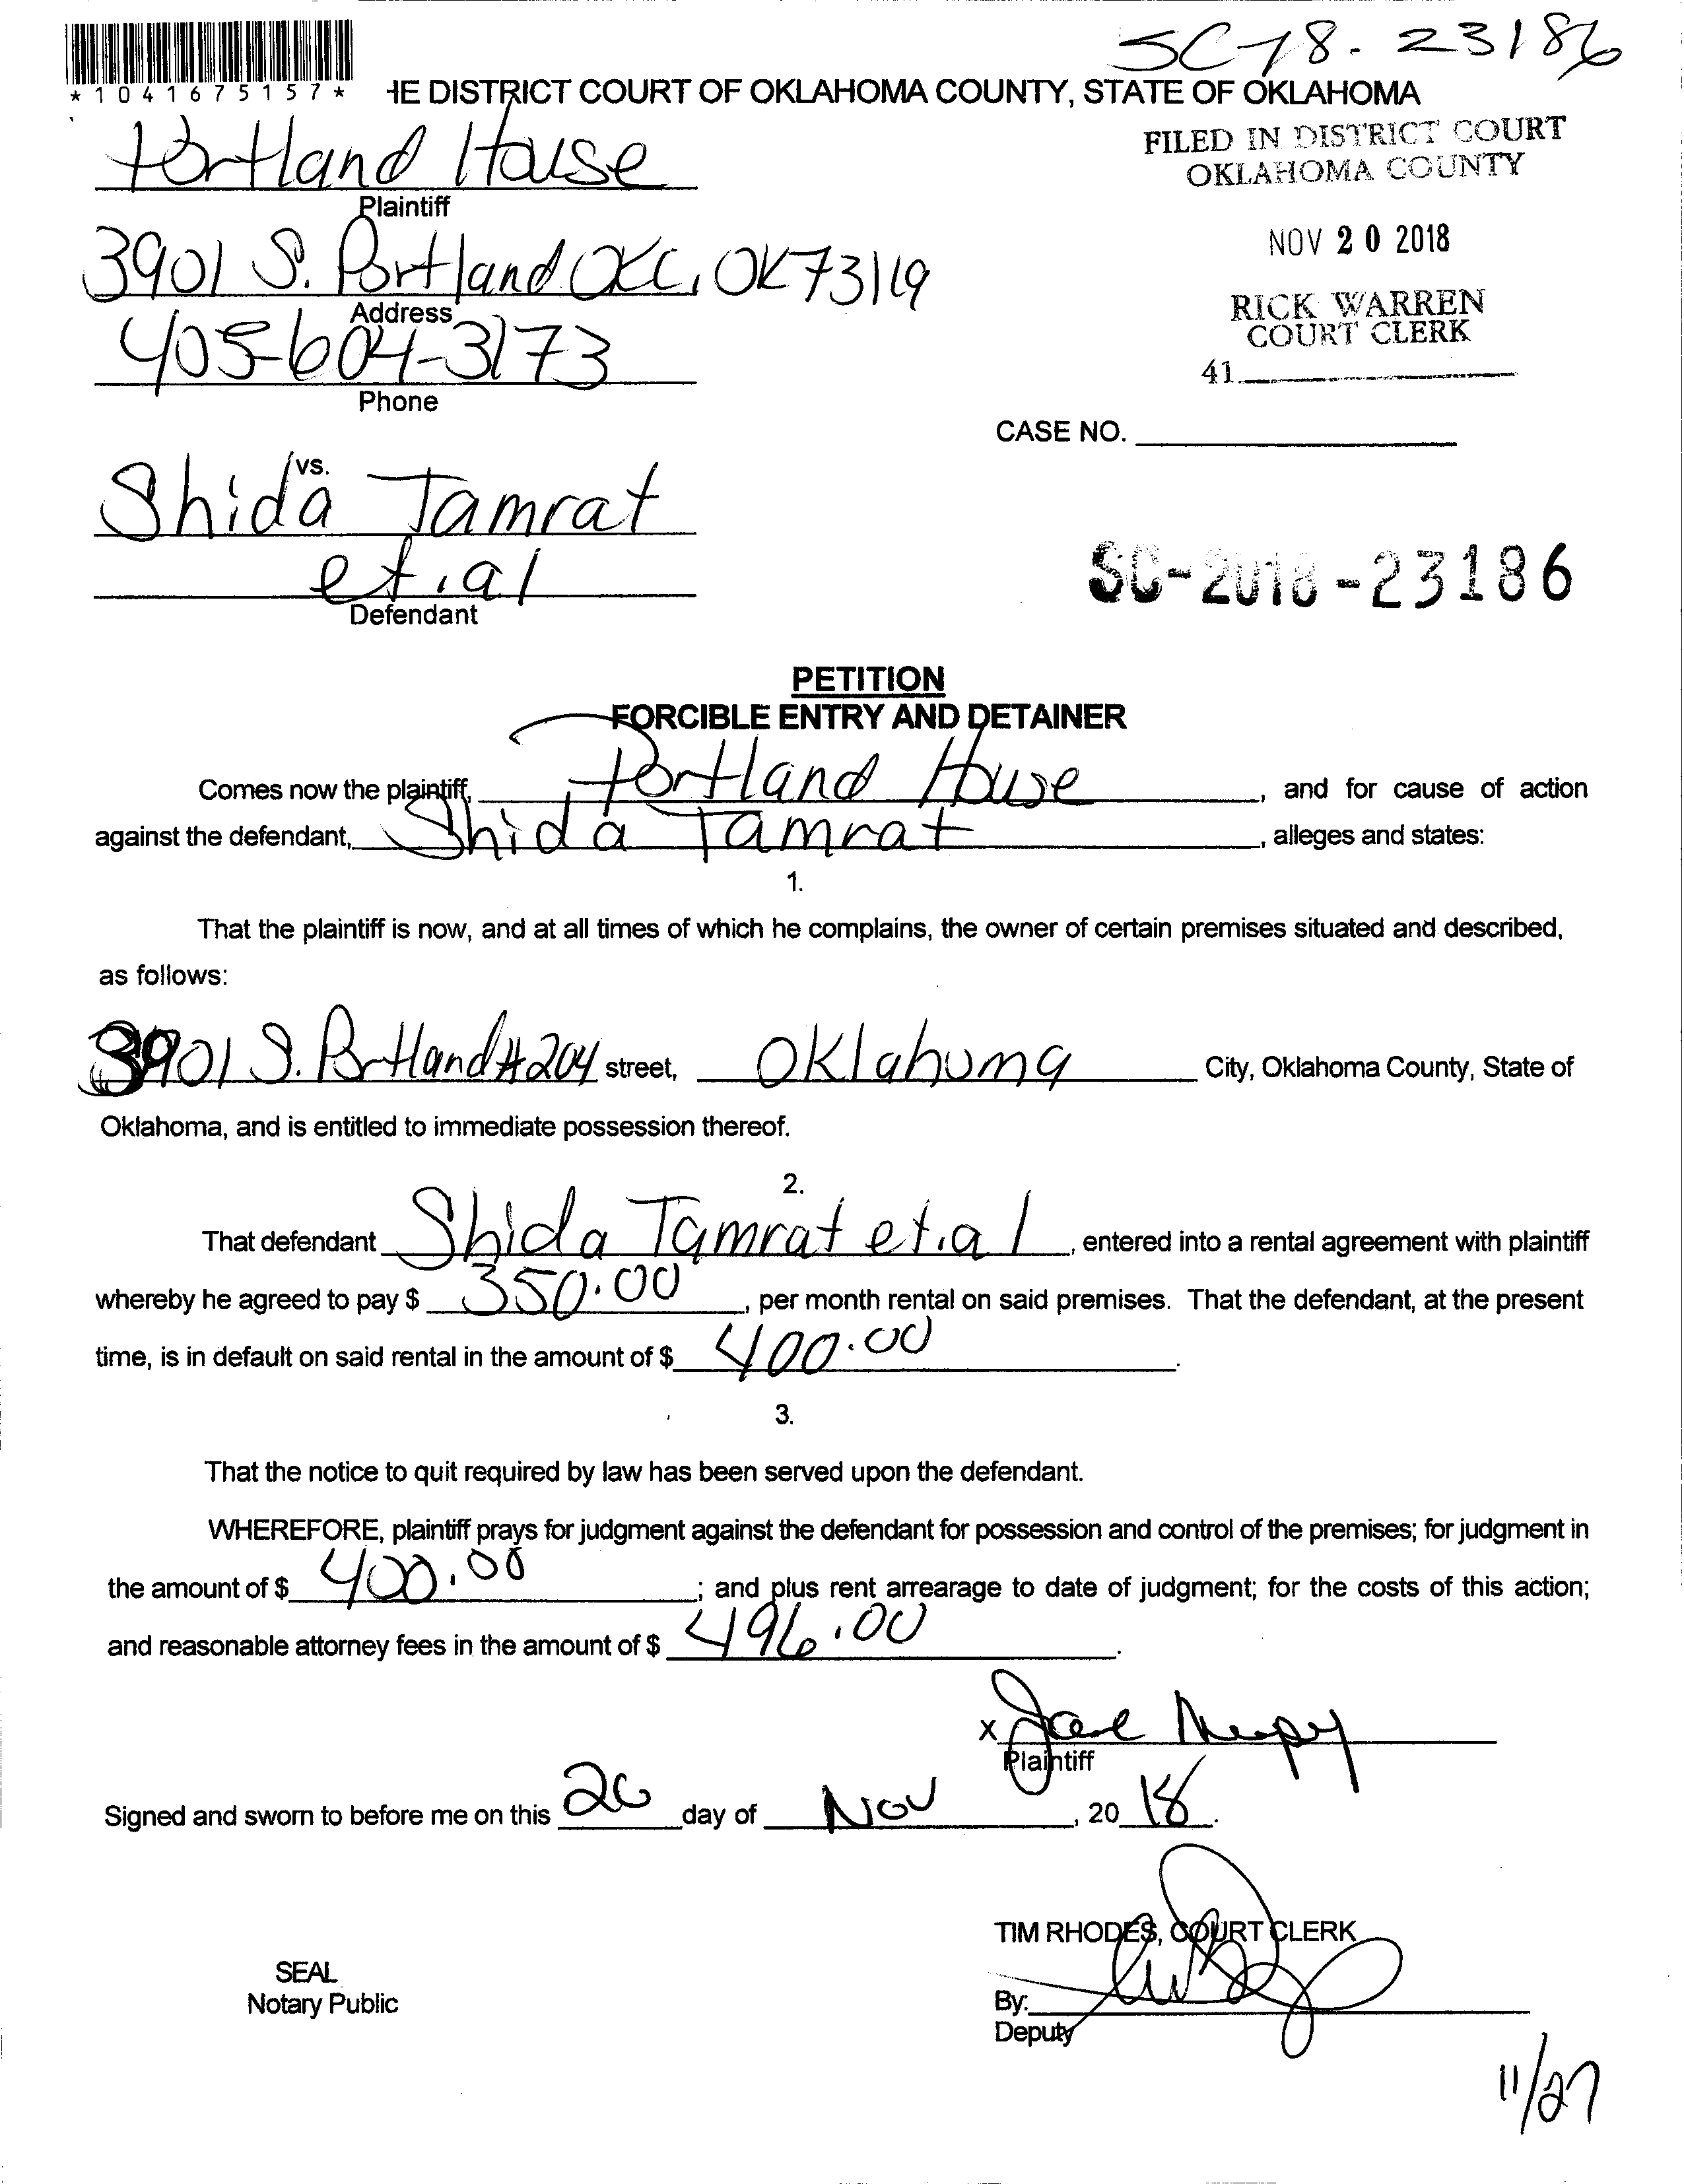 SC-18-23186
*1041675157*
HE DISTRICT COURT OF OKLAHOMA COUNTY, STATE OF OKLAHOMA
FILED IN DISTRICT COURT
OKLAHOMA COUNTY
Portland House
Plaintiff
NOV 20 2018
3901 S. Portland OKC, OK 73119
Address
RICK WARREN
COURT CLERK
405-604-3173
41
Phone
CASE NO.
vs.
Shida Tamrat
et.al
Defendant
SC-2018-23186
PETITION
FORCIBLE ENTRY AND DETAINER
Comes now the plaintiff, Portland House, and for cause of action
against the defendant, Shida Tamrat, alleges and states:
1.
That the plaintiff is now, and at all times of which he complains, the owner of certain premises situated and described,
as follows:
3901 S. Portland #204 street, Oklahoma City, Oklahoma County, State of
Oklahoma, and is entitled to immediate possession thereof.
2.
That defendant Shida Tamrat et.al, entered into a rental agreement with plaintiff
whereby he agreed to pay $ 350.00, per month rental on said premises. That the defendant, at the present
time, is in default on said rental in the amount of $ 400.00.
3.
That the notice to quit required by law has been served upon the defendant.
WHEREFORE, plaintiff prays for judgment against the defendant for possession and control of the premises; for judgment in
the amount of $ 400.00; and plus rent arrearage to date of judgment; for the costs of this action;
and reasonable attorney fees in the amount of $ 496.00.
X
Plaintiff
Signed and sworn to before me on this 20 day of Nov, 2018.
TIM RHODES, COURT CLERK
SEAL
Notary Public
By:
Deputy
11/27